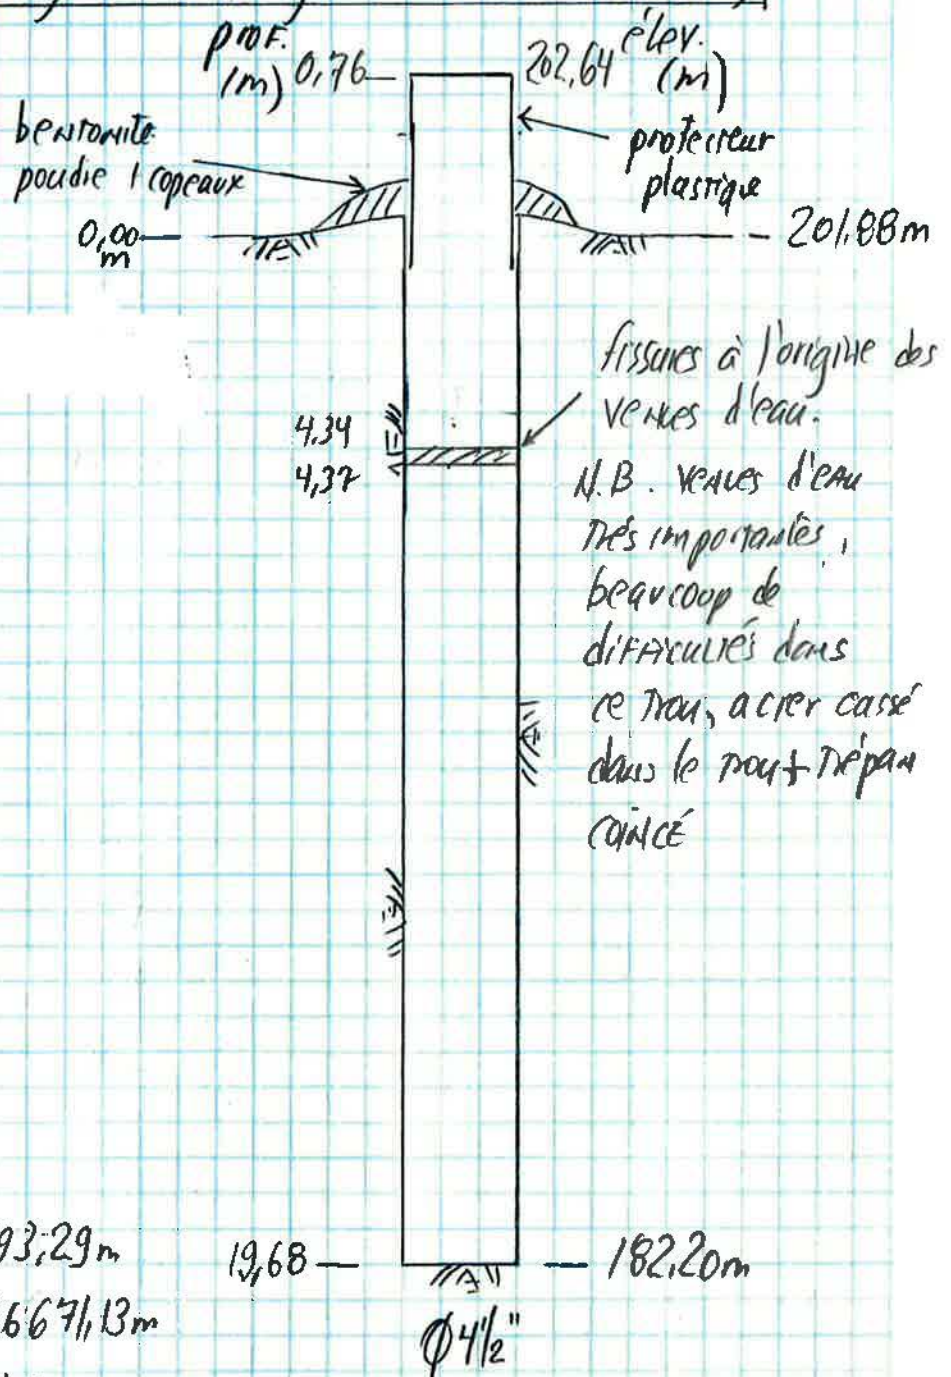 prof.
(m)
0,76
202,64
élev.
(m)
bentonite
poudre / copeaux
protecteur
plastique
0,00
m
201.88m
fissures à l'origine des
venues d'eau.
4.34
4,37
N.B. venues d'eau
très importantes,
beaucoup de
difficultés dans
ce trou, acier cassé
dans le trou + trépan
coincé
93,29m
19,68
182,20m
6671,13m
Ø 4 1/2"